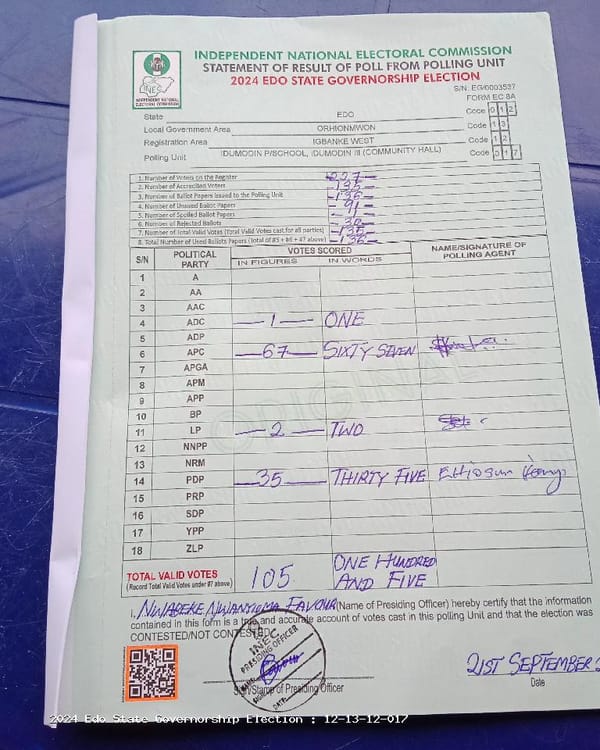 INDEPENDENT NATIONAL ELECTORAL COMMISSION
STATEMENT OF RESULT OF POLL FROM POLLING UNIT
2024 EDO STATE GOVERNORSHIP ELECTION
S/N: EG/0003537
FORM EC 8A
INEC
INDEPENDENT NATIONAL ELECTORAL COMMISSION
State EDO Code 0 1 2
Local Government Area ORHIONMWON Code 1 3
Registration Area IGBANKE WEST Code 1 2
Polling Unit IDUMODIN P/SCHOOL, IDUMODIN III (COMMUNITY HALL) Code 0 1 7
1. Number of Voters on the Register
2. Number of Accredited Voters
3. Number of Ballot Papers Issued to the Polling Unit
4. Number of Unused Ballot Papers
5. Number of Spoiled Ballot Papers
6. Number of Rejected Ballots
7. Number of Total Valid Votes (Total Valid Votes cast for all parties) 135
8. Total Number of Used Ballots Papers (Total of #5 + #6 + #7 above) 136
S/N POLITICAL PARTY VOTES SCORED NAME/SIGNATURE OF POLLING AGENT
IN FIGURES IN WORDS
1 A
2 AA
3 AAC
4 ADC 1 ONE
5 ADP
6 APC 67 SIXTY SEVEN
7 APGA
8 APM
9 APP
10 BP
11 LP 2 TWO
12 NNPP
13 NRM
14 PDP 35 THIRTY FIVE
15 PRP
16 SDP
17 YPP
18 ZLP
ORIGINAL
TOTAL VALID VOTES 105 ONE HUNDRED AND FIVE
(Record Total Valid Votes under #7 above)
I, NWABEKE NWANYIOMA FAVOUR (Name of Presiding Officer) hereby certify that the information
contained in this form is a true and accurate account of votes cast in this polling Unit and that the election was
CONTESTED/NOT CONTESTED.
INEC
PRESIDING OFFICER
Sign/Stamp of Presiding Officer
21ST SEPTEMBER 2
Date
2024 Edo State Governorship Election : 12-13-12-017